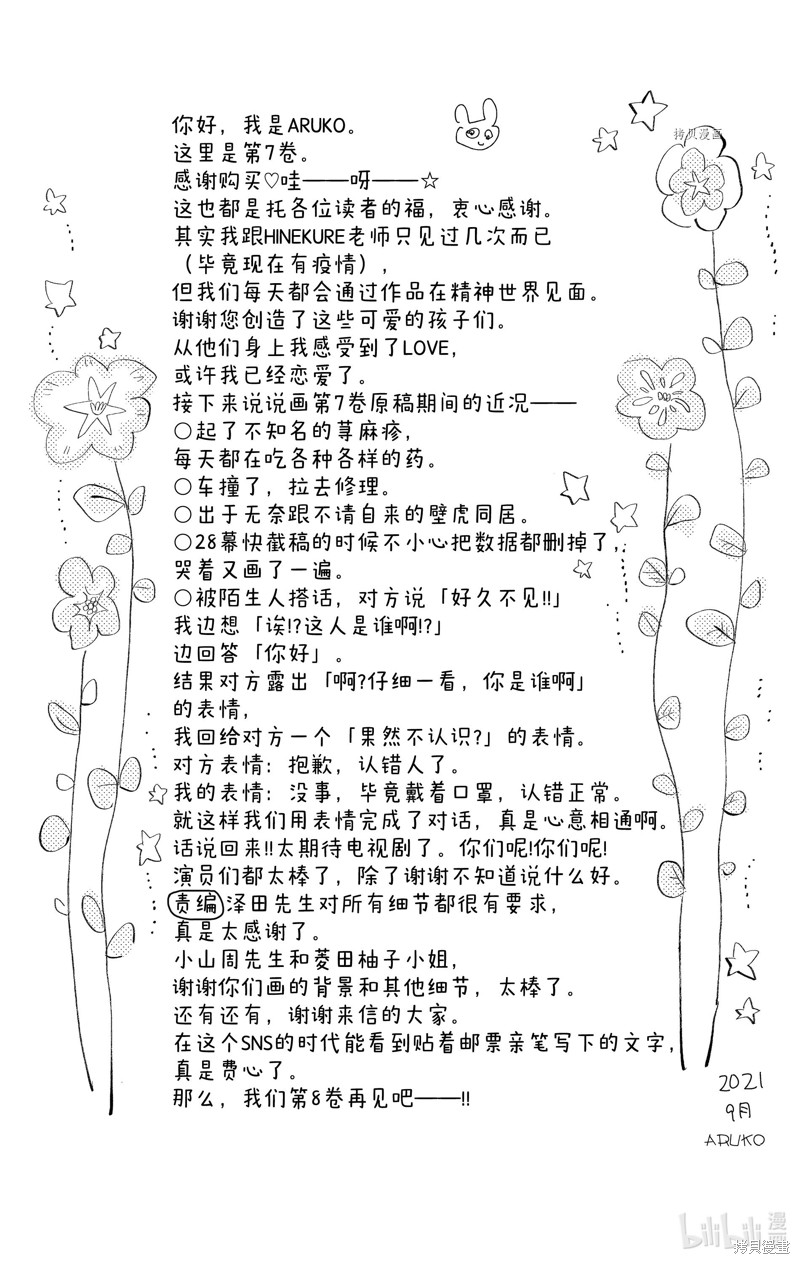 拷贝漫画
你好，我是ARUKO。
这里是第7卷。
感谢购买♡哇——呀——☆
这也都是托各位读者的福，衷心感谢。
其实我跟HINEKURE老师只见过几次而已
（毕竟现在有疫情），
但我们每天都会通过作品在精神世界见面。
谢谢您创造了这些可爱的孩子们。
从他们身上我感受到了LOVE，
或许我已经恋爱了。
接下来说说画第7卷原稿期间的近况——
○起了不知名的荨麻疹，
每天都在吃各种各样的药。
○车撞了，拉去修理。
○出于无奈跟不请自来的壁虎同居。
○28幕快截稿的时候不小心把数据都删掉了，
哭着又画了一遍。
○被陌生人搭话，对方说「好久不见!!」
我边想「诶!?这人是谁啊!?」
边回答「你好」。
结果对方露出「啊?仔细一看，你是谁啊」
的表情，
我回给对方一个「果然不认识?」的表情。
对方表情：抱歉，认错人了。
我的表情：没事，毕竟戴着口罩，认错正常。
就这样我们用表情完成了对话，真是心意相通啊。
话说回来!!太期待电视剧了。你们呢!你们呢!
演员们都太棒了，除了谢谢不知道说什么好。
责编 泽田先生对所有细节都很有要求，
真是太感谢了。
小山周先生和菱田柚子小姐，
谢谢你们画的背景和其他细节，太棒了。
还有还有，谢谢来信的大家。
在这个SNS的时代能看到贴着邮票亲笔写下的文字，
真是费心了。
那么，我们第8卷再见吧——!!
2021
9月
ARUKO
bilibili 漫画
拷贝漫畫